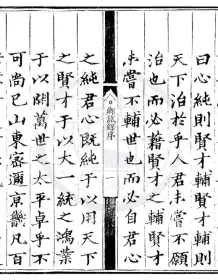 曰心純則賢才輔賢才輔則
天下治於乎人君未嘗不願
治也而必藉賢才之輔賢才
未嘗不輔世也而必自君心
鄉試錄序
之純君心既純于以用天下
之賢才于以大一統之鴻業
于以開萬世之太平卓乎不
可尚已山東密邇京畿凡百